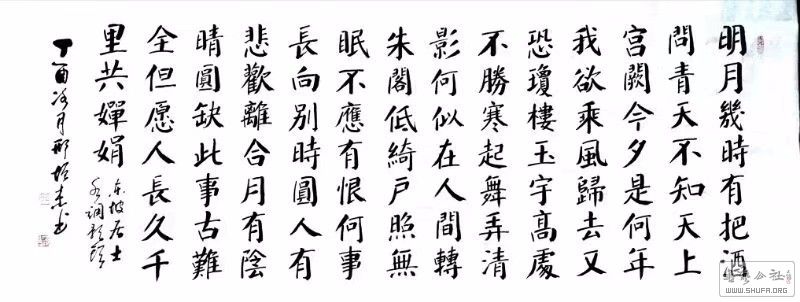 明月幾時有把酒
問青天不知天上
宮闕今夕是何年
我欲乘風歸去又
恐瓊樓玉宇高處
不勝寒起舞弄清
影何似在人間轉
朱閣低綺戶照無
眠不應有恨何事
長向別時圓人有
悲歡離合月有陰
晴圓缺此事古難
全但愿人長久千
里共嬋娟
東坡居士
水調歌頭
丁酉冷月邢培杰书
WWW.SHUFA.ORG